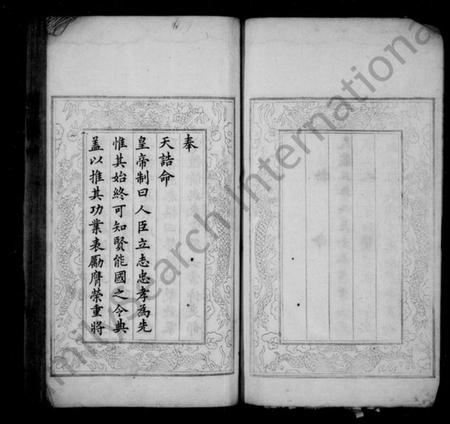 奉
天誥命
皇帝制曰人臣立志忠孝為先
惟其始終可知賢能國之令典
蓋以推其功業表勵膺榮重將